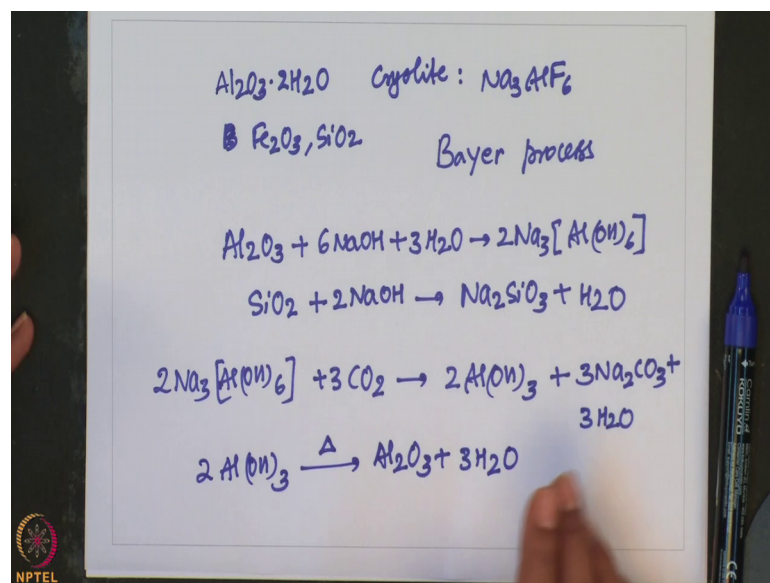 Al2O3·2H2O Cryolite : Na3AlF6
Fe2O3, SiO2
Bayer process
Al2O3 + 6NaOH + 3H2O → 2Na3[Al(OH)6]
SiO2 + 2NaOH → Na2SiO3 + H2O
2Na3[Al(OH)6] + 3CO2 → 2Al(OH)3 + 3Na2CO3 +
3H2O
2Al(OH)3 Δ→ Al2O3 + 3H2O
Camlin
KOKUYO
CE
NPTEL